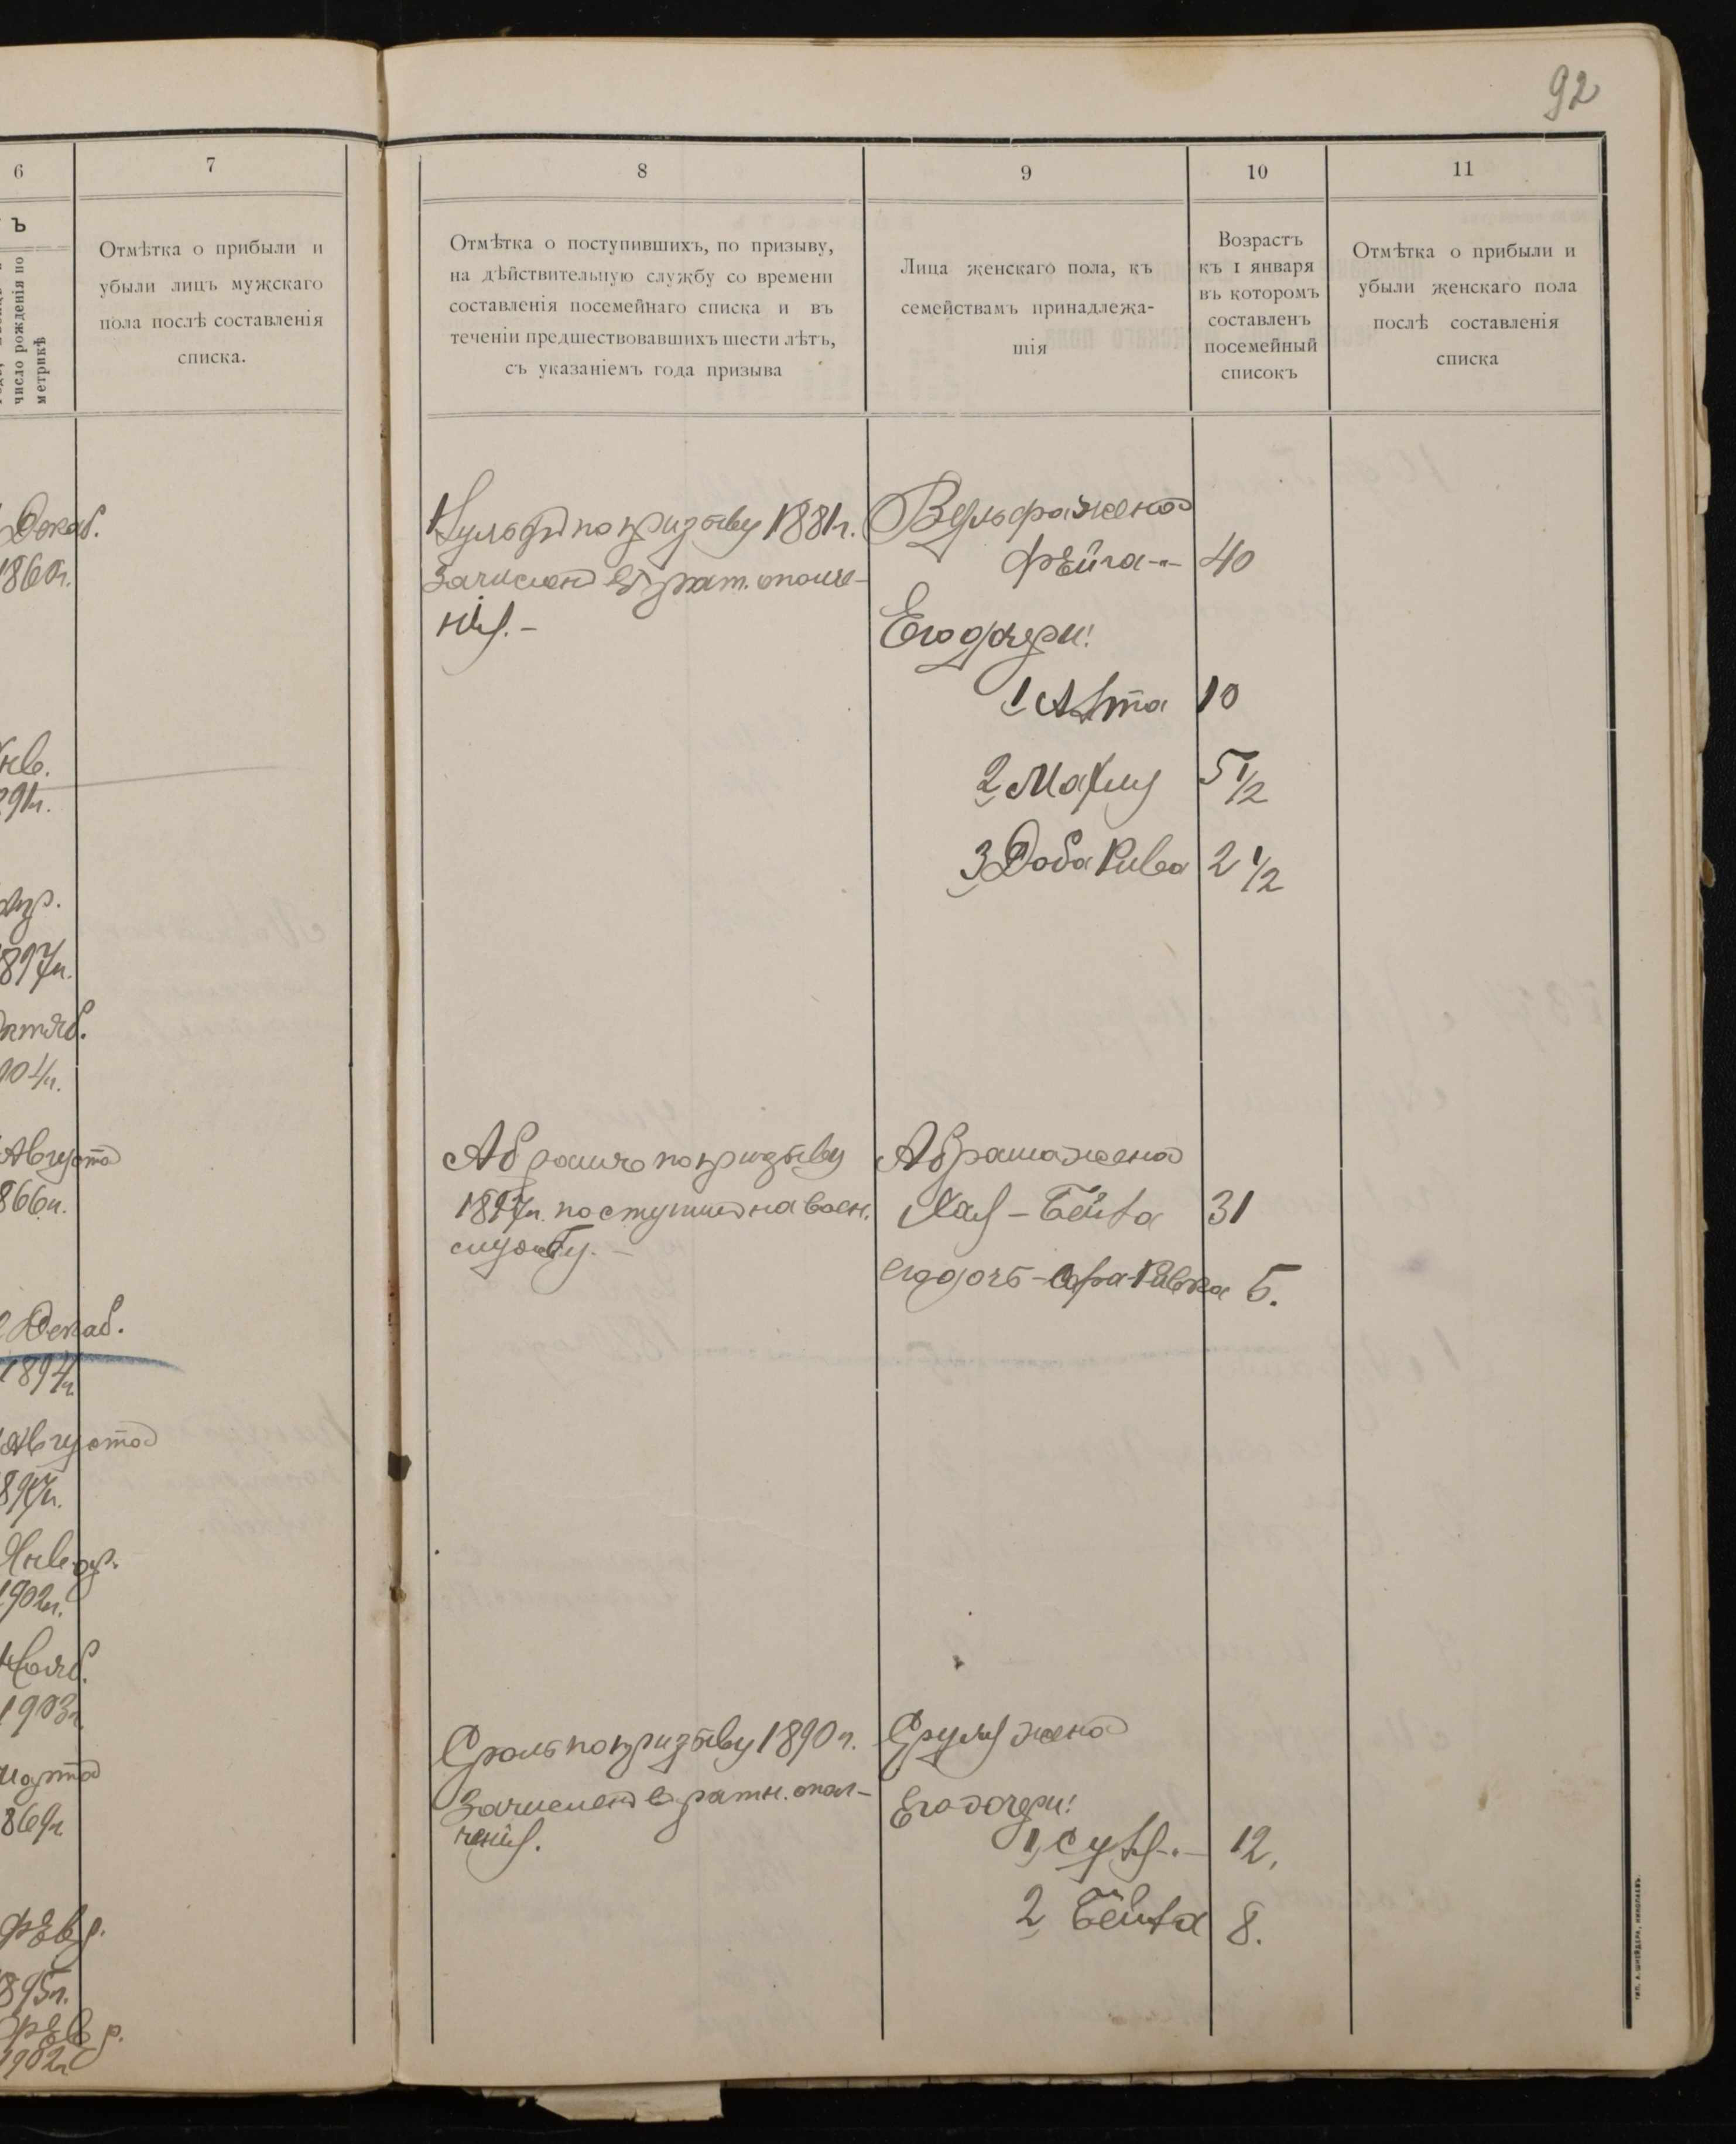 92
6
7
8
9
10
11
ъ
число рожденія по
метрикѣ
Отмѣтка о прибыли и
убыли лицъ мужскаго
пола послѣ составленія
списка.
Отмѣтка о поступившихъ, по призыву,
на дѣйствительную службу со времени
составленія посемейнаго списка и въ
теченіи предшествовавшихъ шести лѣтъ,
съ указаніемъ года призыва
Лица женскаго пола, къ
семействамъ принадлежа-
щія
Возрастъ
къ 1 января
въ которомъ
составленъ
посемейный
списокъ
Отмѣтка о прибыли и
убыли женскаго пола
послѣ составленія
списка
Декаб.
1860г.
Янв.
891г.
897г.
904г.
Августа
866г.
Декаб.
1894г.
Августа
897г.
Январ.
1902г.
Нояб.
1903г.
марта
869г.
Февр.
895г.
Февр.
1902г.
по призыву 1881г.
Зачисленъ в рат. ополче-
нія.-
Вульфа жена
Фейга-"- 40
Его дочери:
1 10
2 Махля 5 1/2
3 Доба Рива 2 1/2
Абрамъ по призыву
1897г. поступилъ на воен.
службу.-
Абрама жена
Хая-Бейла 31
его дочь-Сура Ривка 5.
Сроль по призыву 1890г.
Зачисленъ в ратн. опол-
ченія.
Сруля жена
Его дочери:
1, 12,
2 Бейла 8.
ТИП. А. ШНЕЙДЕРЪ, НИКОЛАЕВЪ.